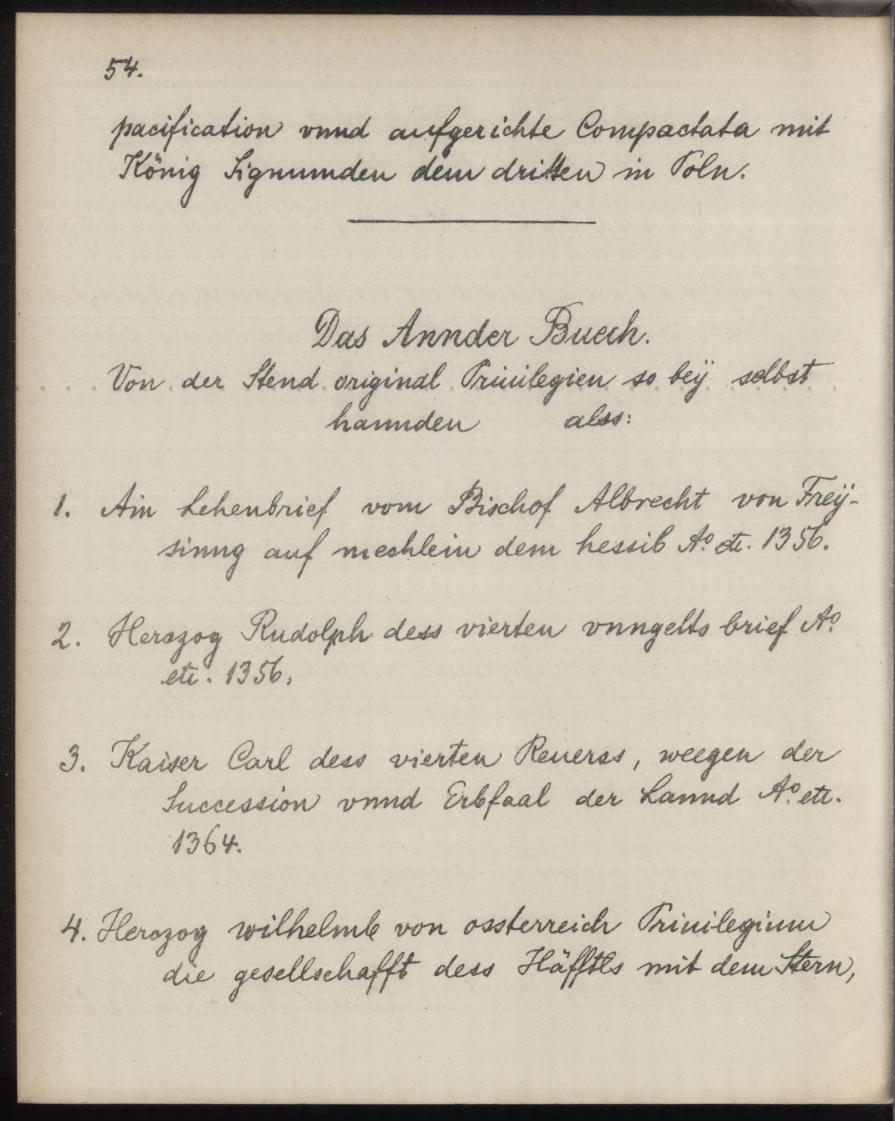 54.
pacification vnnd aufgerichte Compactata mit
König Sigmunden dem dritten in Poln.
Das Annder Buech.
Von der Stend original Priuilegien so beÿ selbst
hannden alss:
1. Ain Lehenbrief vom Bischof Albrecht von Freÿ-
sinng auf mechlein dem hessib Aº etc. 1356.
2. Herzog Rudolph dess vierten vnngelts brief Aº
etc. 1356.
3. Kaiser Carl dess vierten Reuerss, weegen der
Succession vnnd Erbfaal der Lannd Aº etc.
1364.
4. Herzog wilhelmb von ossterreich Priuilegium
die gesellschafft dess Häfftls mit dem Stern,